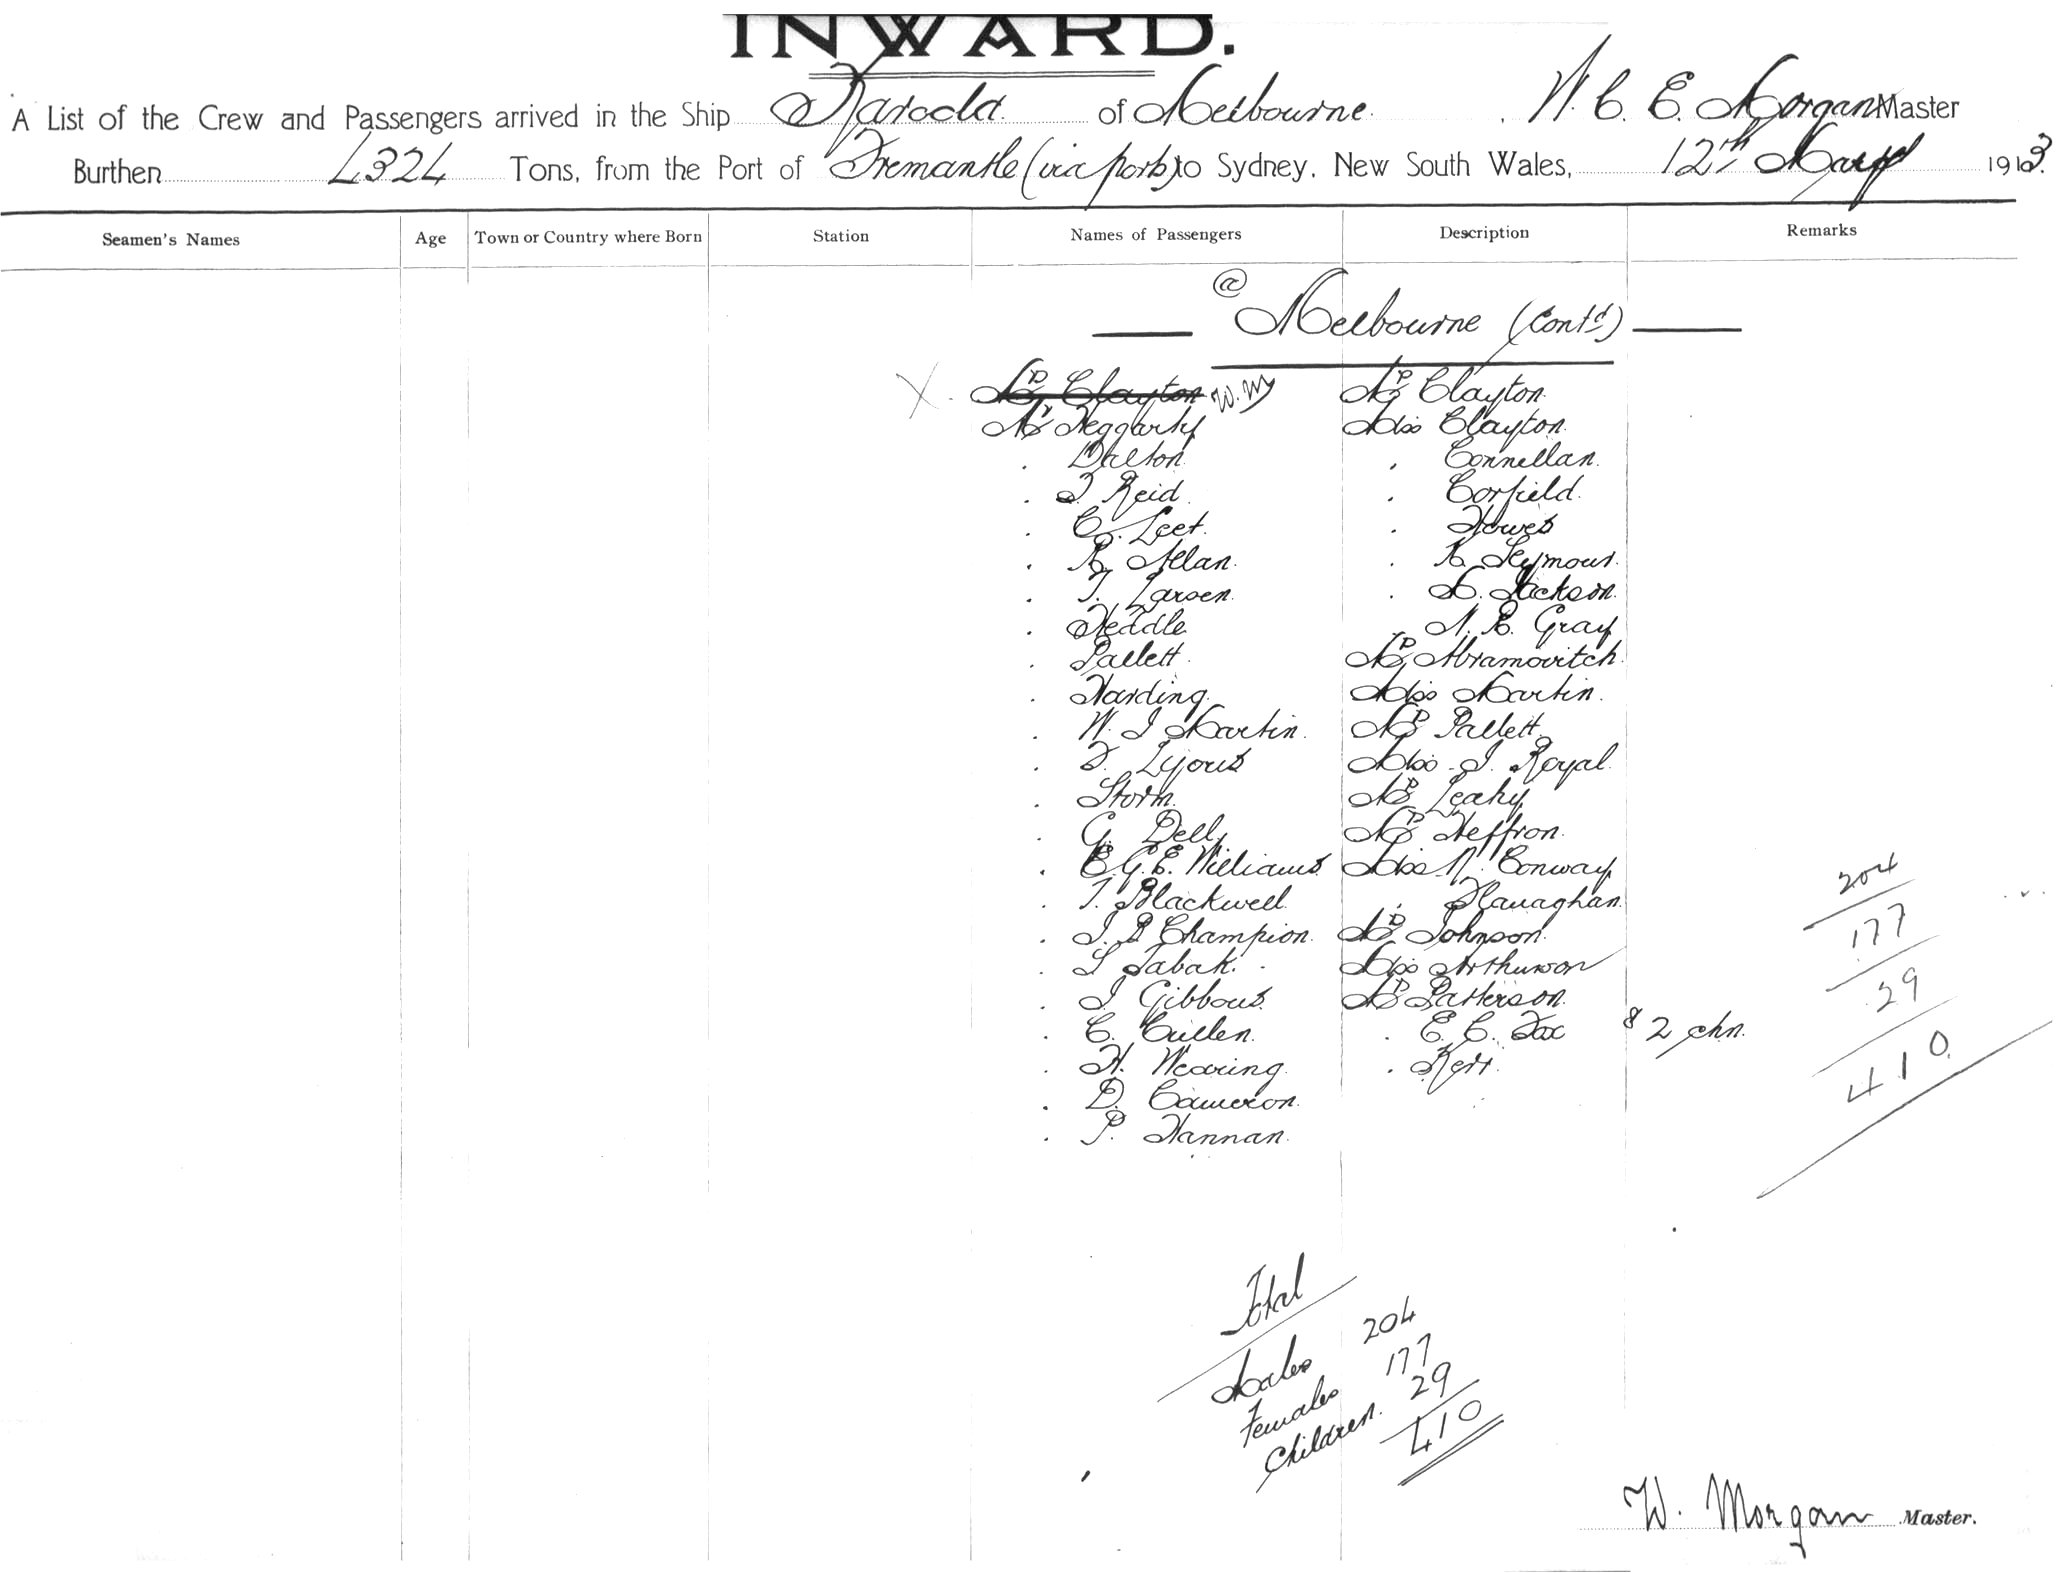 INWARD.
A List of the Crew and Passengers arrived in the Ship Karoola of Melbourne. W. C. E. Morgan Master
Burthen 4324 Tons, from the Port of Fremantle (via ports) to Sydney, New South Wales, 12th 1913.
Seamen's Names Age Town or Country where Born Station Names of Passengers Description Remarks
@
Melbourne (Contd)
X. Mrs Clayton W.M Mrs Clayton.
Mr Heggarty Miss Clayton.
. Dalton . Connellan.
. Reid . Corfield.
. C. Leet. . Howes
. R. Allan. . Seymour.
. T. Larsen. . Jackson.
. Heddle . Gray
. Pallett. Mrs Abramovitch.
. Harding. Miss Martin.
. W. J Martin. Mrs Pallett.
. Lyons Miss J. Royal.
. Storm. Mrs Leahy
. G. Dell, Mrs Heffron.
. E.G.E. Williams. Miss N. Conway
. T. Blackwell . Flanaghan.
. J. B Champion. Mrs Johnson.
. Tabak. Miss Arthurson
. J Gibbons. Mrs Patterson.
. C. Cullen. . E. C. Fox & 2 chn.
. H. Wearing. . Kerr.
. D. Cameron.
. P. Hannan.
204
177
29
410
Total
Males 204
Females 177
Children. 29
410
W. Morgan Master.